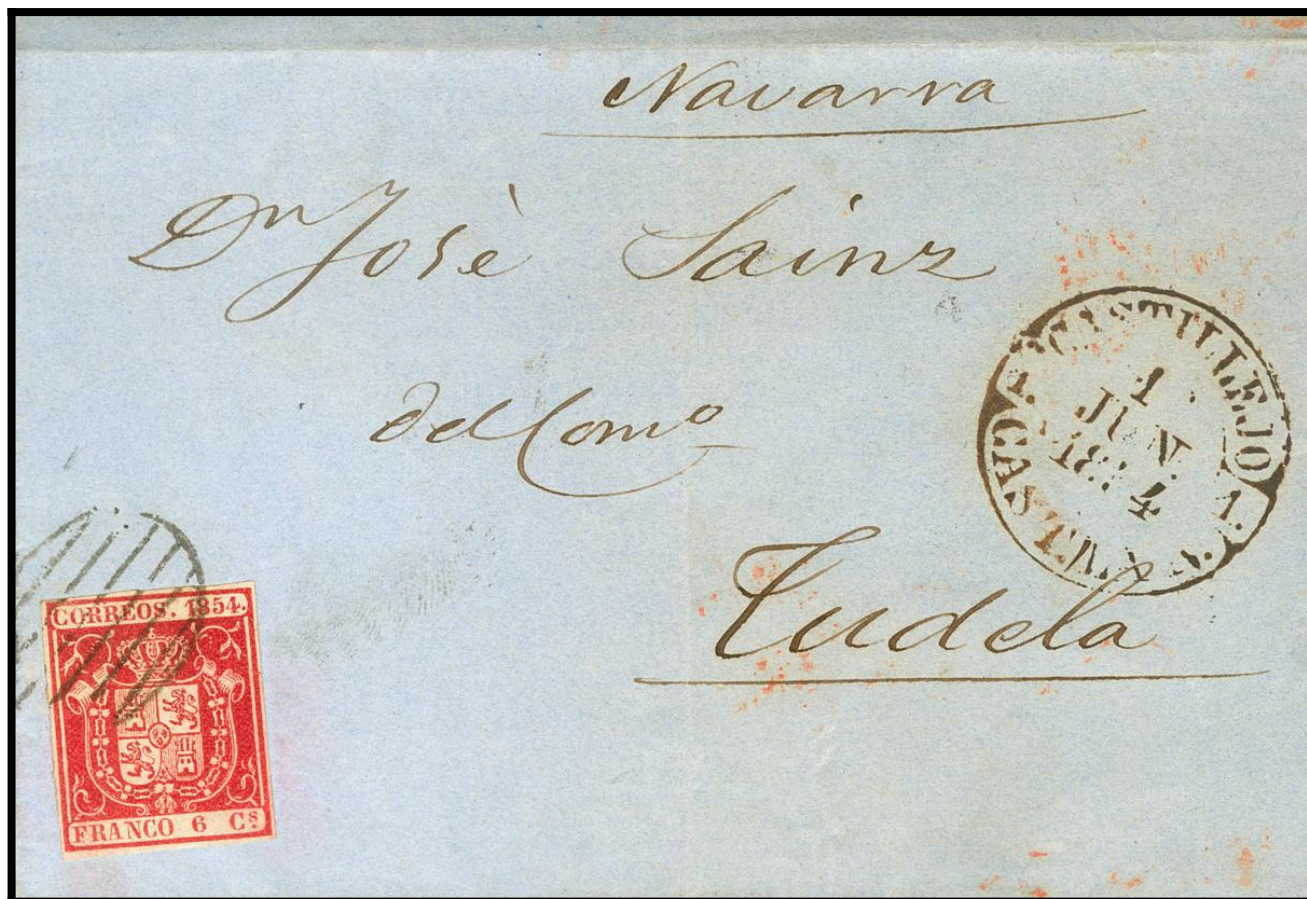 Navarra
Dn Josè Sainz
del Como
Tudela
CASTILLEJO
1
JUN.
1854
1.
1.
CAST.
CORREOS. 1854.
FRANCO 6 Cs.